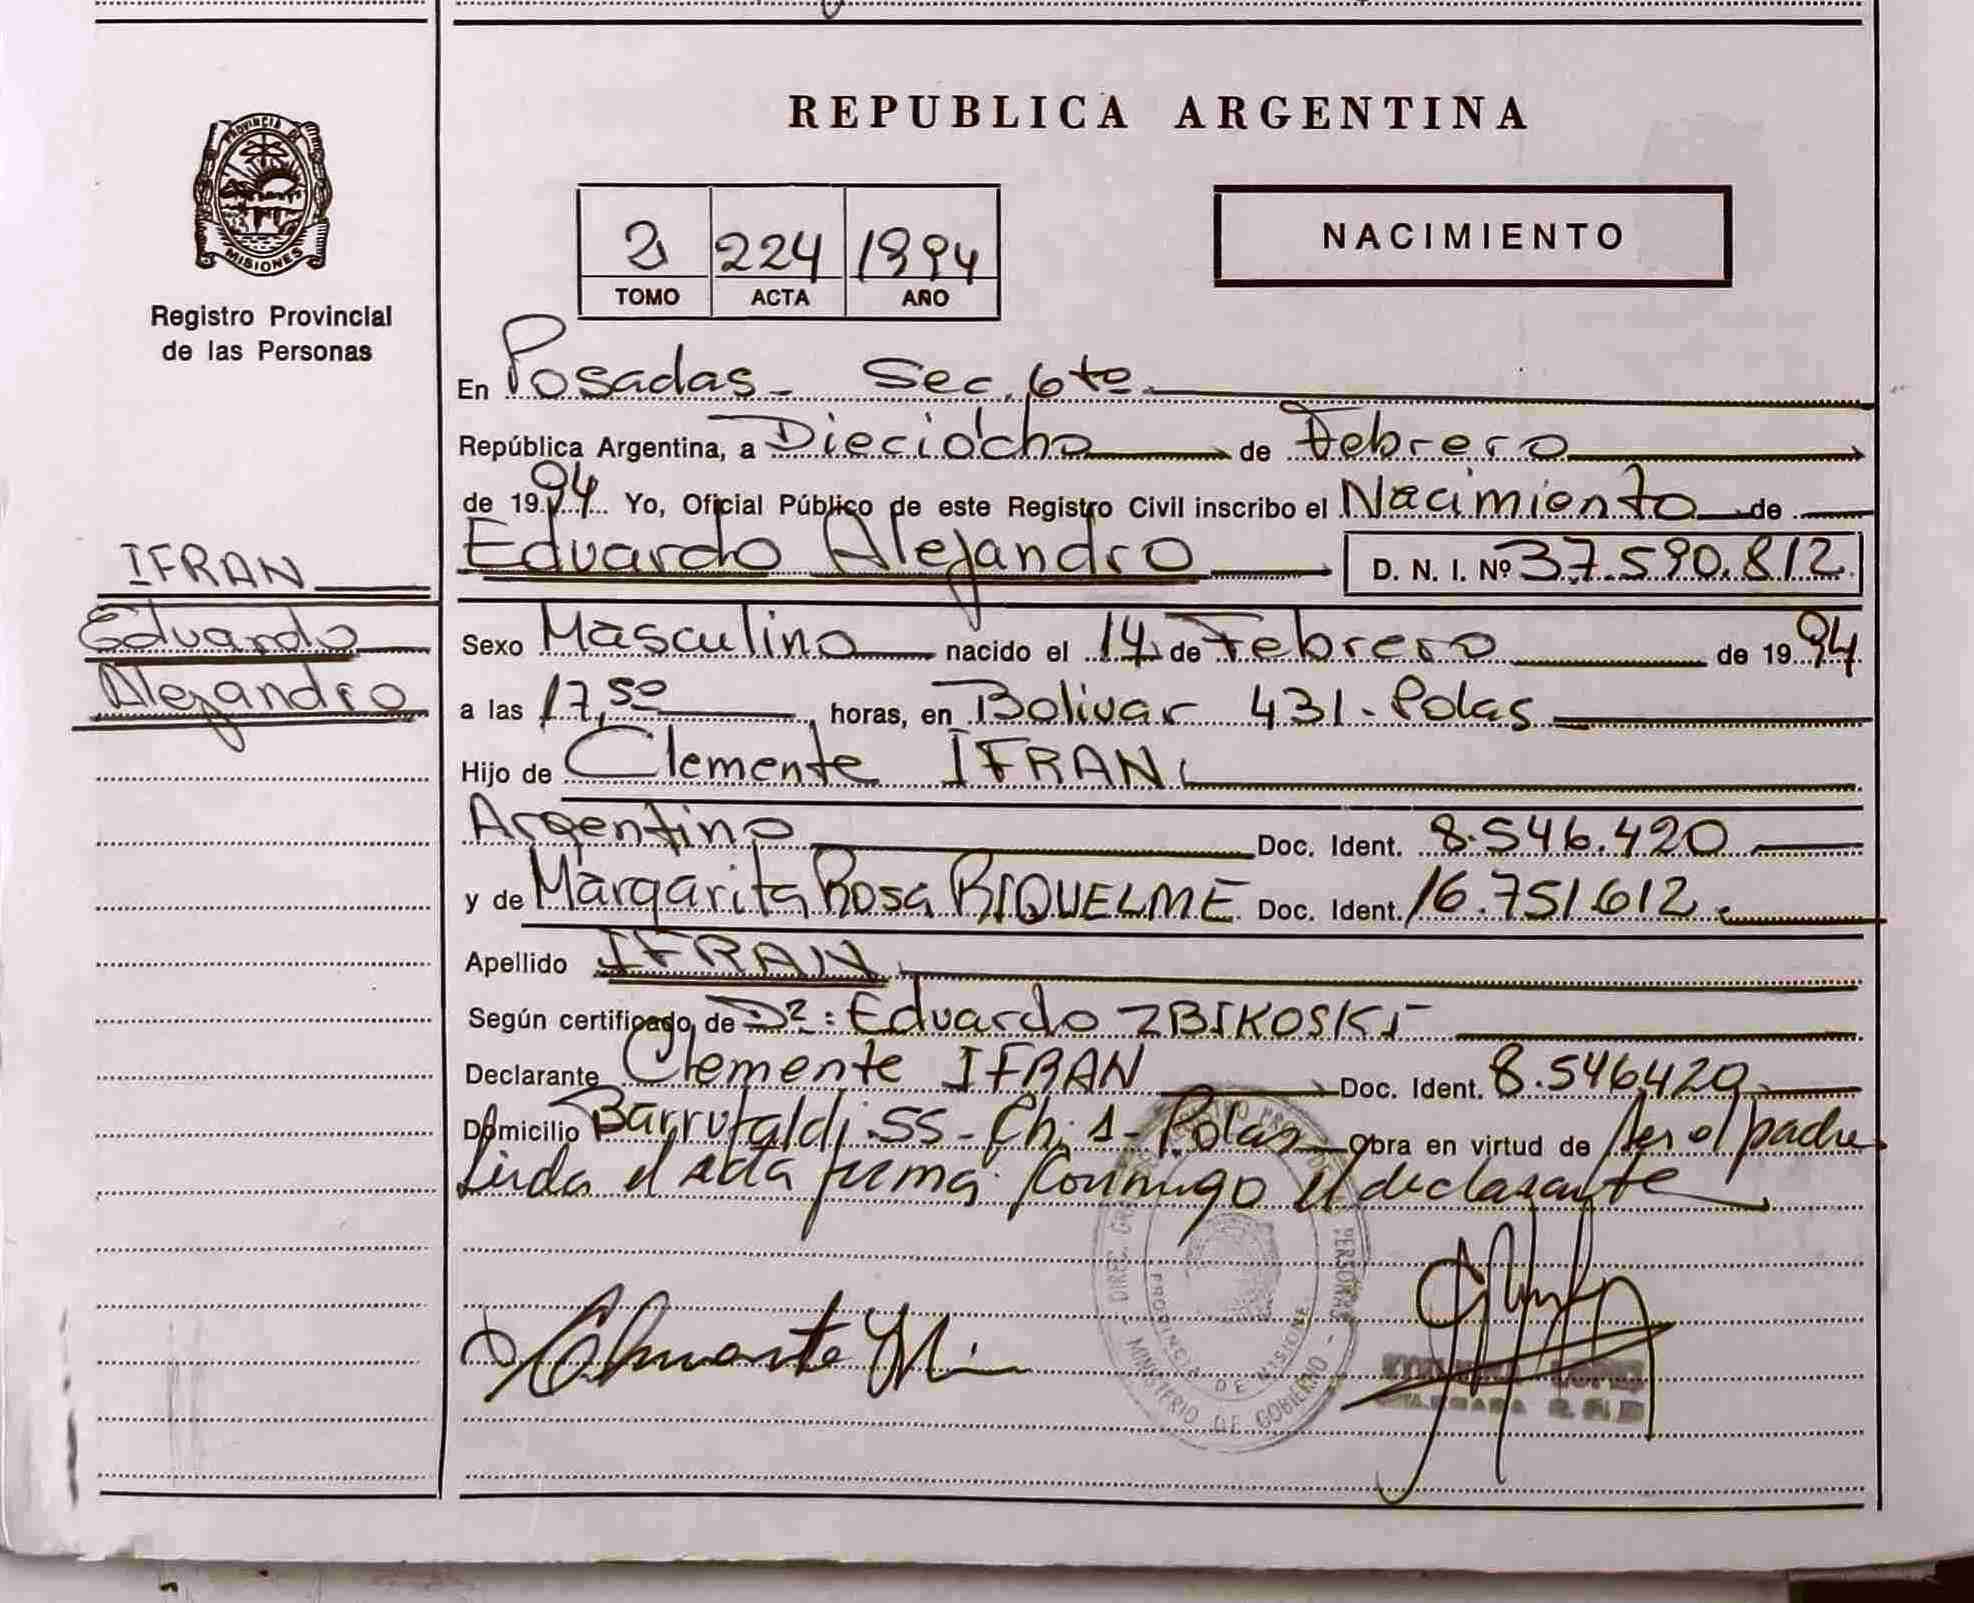 REPUBLICA ARGENTINA
PROVINCIA DE
MISIONES
Registro Provincial
de las Personas
2 224 1994
TOMO ACTA AÑO
NACIMIENTO
En Posadas - Sec. 6ta
República Argentina, a Dieciocho de Febrero
de 1994 Yo, Oficial Público de este Registro Civil inscribo el Nacimiento de
Eduardo Alejandro D. N. I. Nº 37.590.812
IFRAN
Eduardo
Alejandro
Sexo Masculino nacido el 14 de Febrero de 1994
a las 17,50 horas, en Bolivar 431 - Pdas
Hijo de Clemente IFRAN
Argentino Doc. Ident. 8.546.420
y de Margarita Rosa RIQUELME Doc. Ident. 16.751.612
Apellido IFRAN
Según certificado de Dr: Eduardo ZBIKOSKI
Declarante Clemente IFRAN Doc. Ident. 8.546420
Domicilio Barrufaldi 55 - Ch. 1 - Pdas Obra en virtud de ser el padre
Leida el acta firma conmigo el declarante
PERSONAS - MINISTERIO DE GOBIERNO
PROVINCIA DE MISIONES